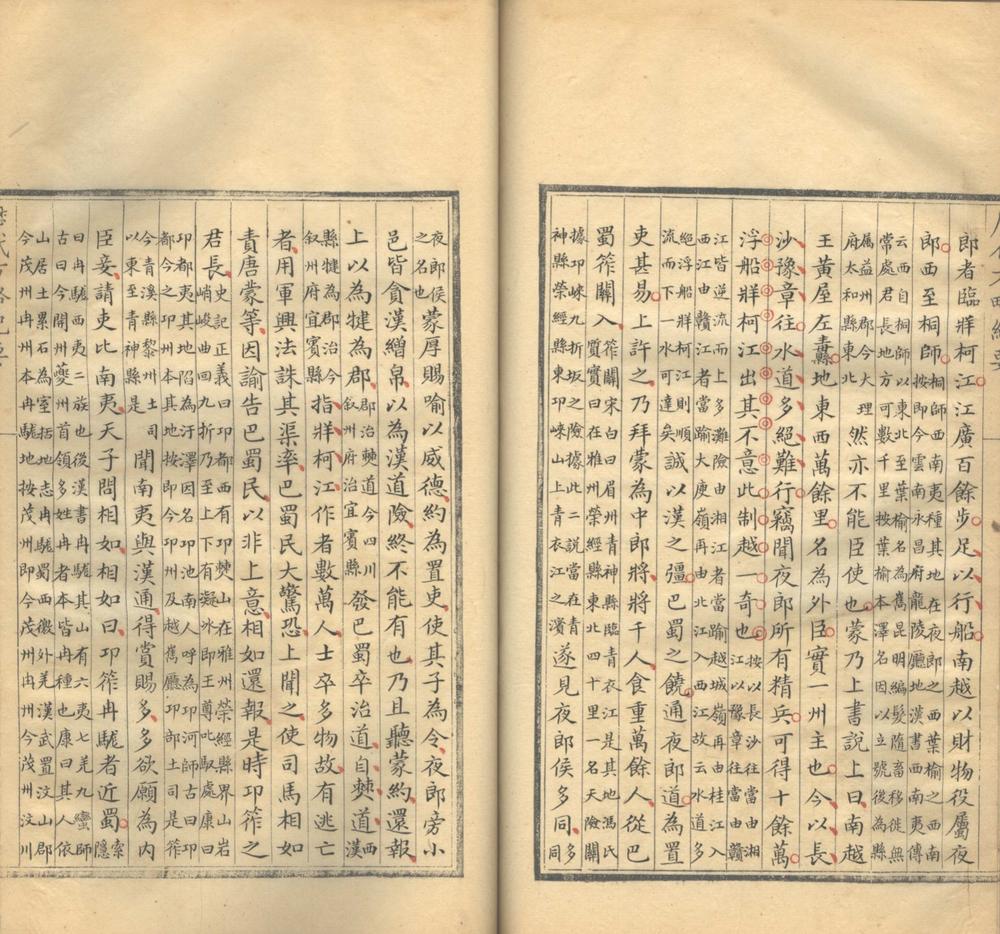 郎者臨牂柯江江廣百餘步足以行船南越以財物役屬夜
郎西至桐師
桐師西南夷種其地在夜郎之西葉榆之西南
按即今雲南永昌府龍陵廳地漢書西南夷傳
云西自桐師以東北至葉榆名為嶲昆明編髮隨畜移徙無
常處君長地方可數千里按葉榆本澤名因以立號後為縣
屬益州郡今大理
府太和縣東北
然亦不能臣使也蒙乃上書說上曰南越
王黃屋左纛地東西萬餘里名為外臣實一州主也今以長
沙豫章往水道多絕難行竊聞夜郎所有精兵可得十餘萬
浮船牂柯江出其不意此制越一奇也
按以長沙往當由湘
江以豫章往當由贛
江皆逆流而上灘險由湘江者當踰越城嶺再由桂江入
西江由贛江者當踰大庾嶺再由北江故云水道多
絕浮船牂柯江則順
流而下一水可達
誠以漢之彊巴蜀之饒通夜郎道為置
吏甚易上許之乃拜蒙為中郎將將千人食重萬餘人從巴
蜀筰關入
筰關宋白曰眉州青神縣臨青衣江是其地馮氏
質實曰在雅州榮經縣東北四十里一名天險關
據邛崍九折坂之險據此二說當在青
神縣榮經縣東邛崍山上青衣江之濱
遂見夜郎侯多同
多
同
夜郎侯
之名也
蒙厚賜喻以威德約為置吏使其子為令夜郎旁小
邑皆貪漢繒帛以為漢道險終不能有也乃且聽蒙約還報
上以為犍為郡
郡治僰道今四川
叙州府治宜賓縣
發巴蜀卒治道自僰道
西
漢
縣犍為郡治今
叙州府宜賓縣
指牂柯江作者數萬人士卒多物故有逃亡
者用軍興法誅其渠率巴蜀民大驚恐上聞之使司馬相如
責唐蒙等因諭告巴蜀民以非上意相如還報是時邛筰之
君長
史記正義曰邛都西有邛僰山在雅州榮經縣界山岩
峭峻曲回九折乃至上下有凝冰即王尊叱馭處康曰
邛都夷其地陷為汙澤因名邛池南人呼為邛河師古曰邛
都今之邛州本其地按即今邛州及越嶲廳邛部土司是筰
今青溪縣黎州土司
以東至青神縣是
聞南夷與漢通得賞賜多多欲願為內
臣妾請吏比南夷天子問相如相如曰邛筰冉駹者近蜀
索
隱
曰冉駹西夷二族也後漢書冉駹其山有六夷七羌九蠻師
古曰今開州夔州首領多姓冉者本皆冉種也康曰其人依
山居土累石為室括地志冉駹蜀西徼外羌漢武置汶山郡
今茂州冉州本冉駹地按茂州即今茂州冉州今茂州汶川